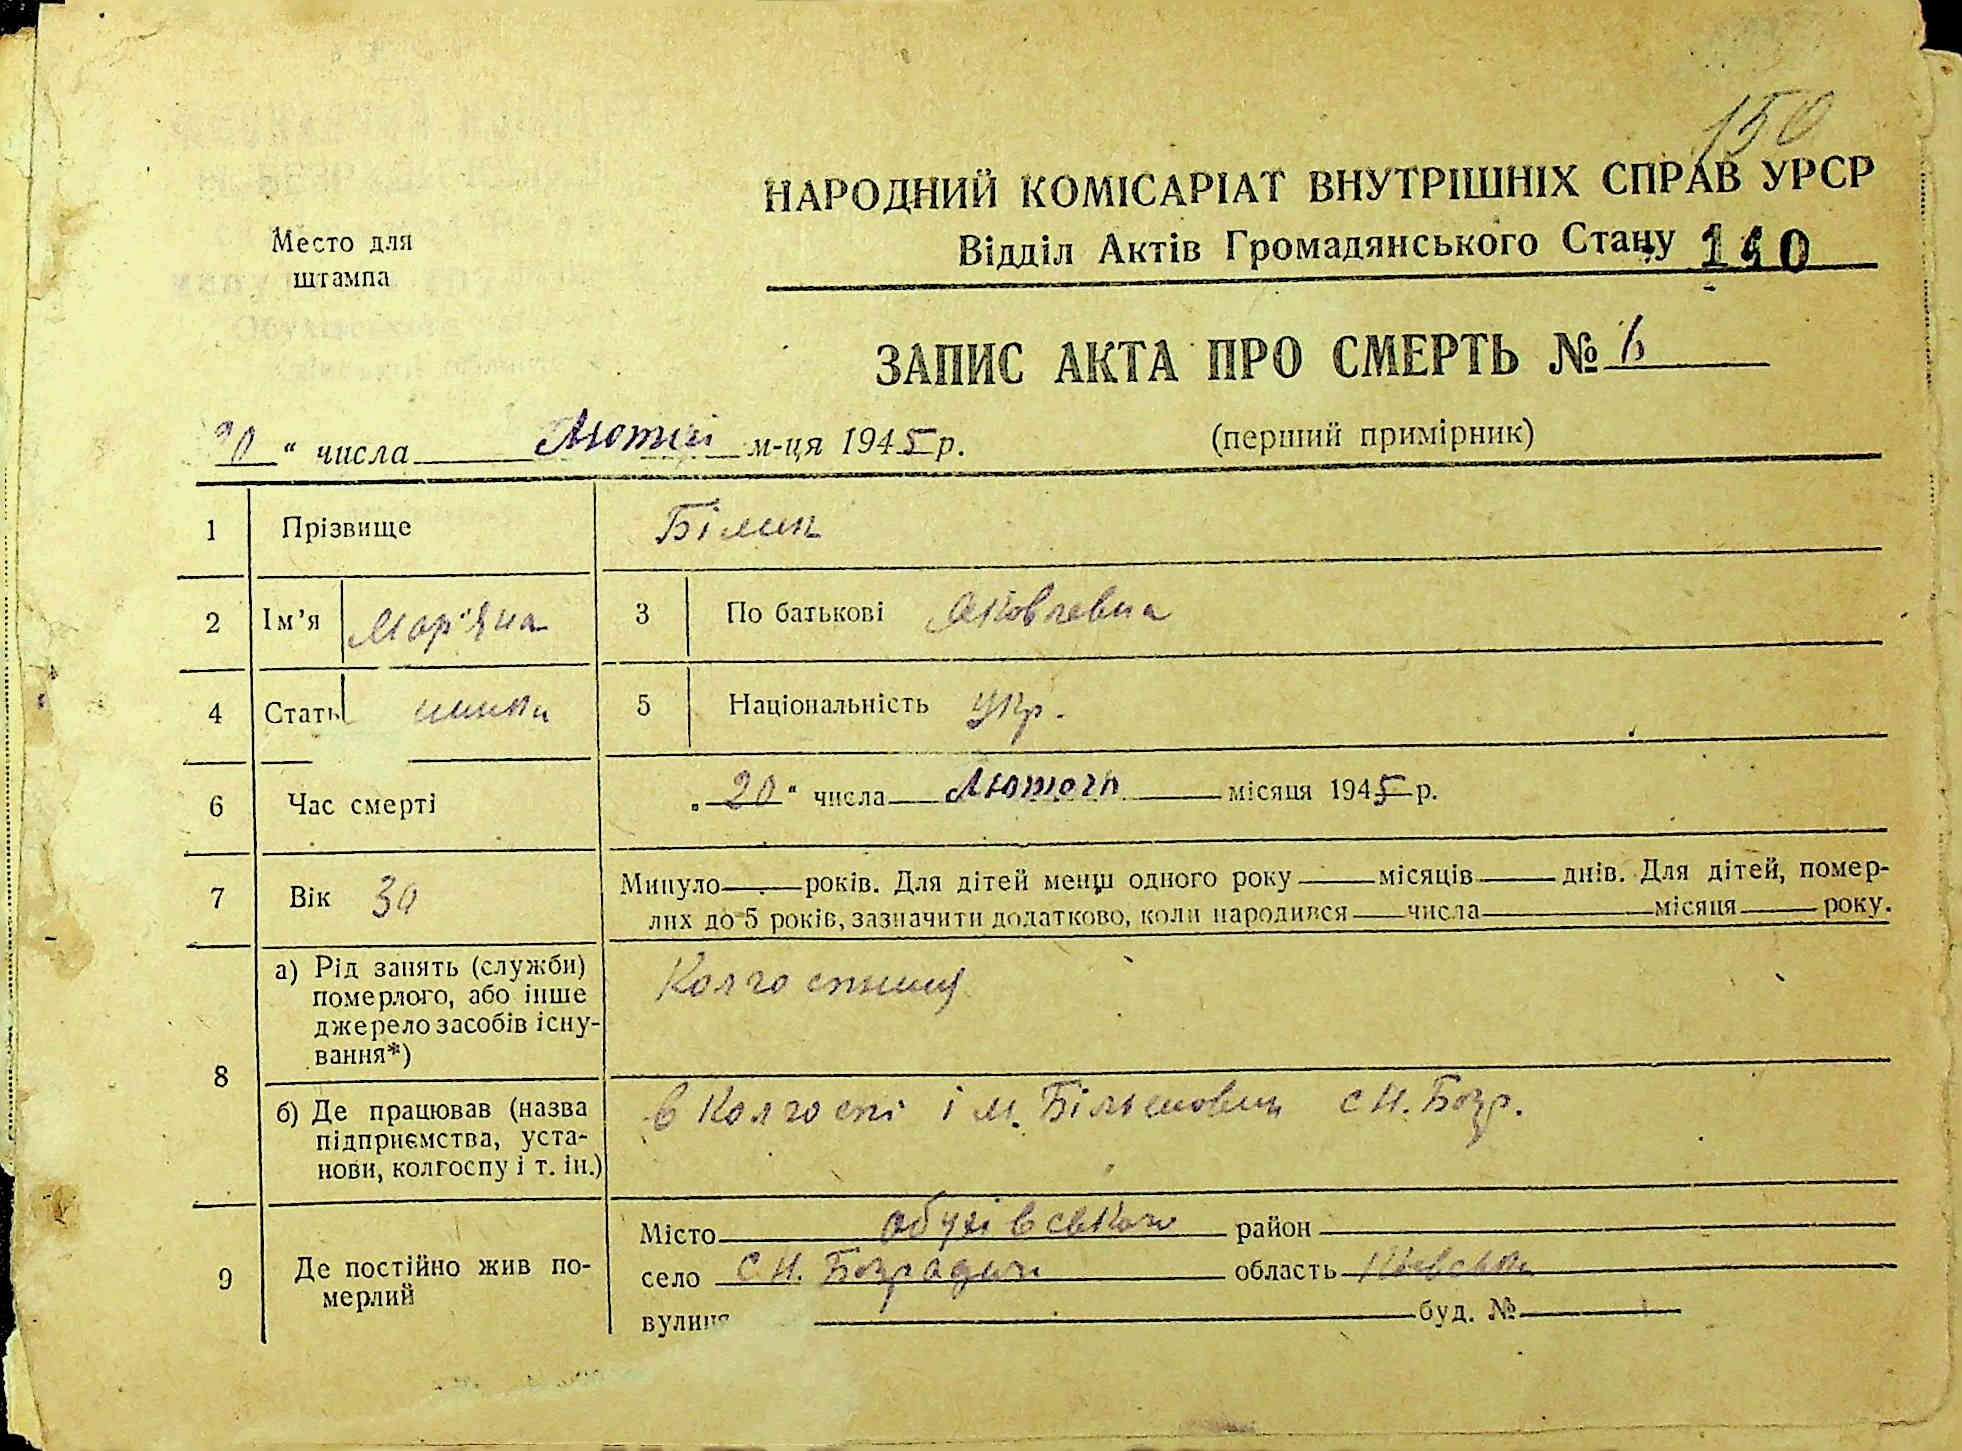 150
НАРОДНИЙ КОМІСАРІАТ ВНУТРІШНІХ СПРАВ УРСР
Відділ Актів Громадянського Стану 140
Место для
штампа
ЗАПИС АКТА ПРО СМЕРТЬ № 6
20 “ числа Лютий м-ця 1945 р.
(перший примірник)
1 Прізвище Білик
2 Ім’я Мар'яна 3 По батькові Яковлевна
4 Стать жинки 5 Національність Укр.
6 Час смерті „ 20 “ числа Лютого місяця 1945 р.
7 Вік 30 Минуло років. Для дітей менш одного року місяців днів. Для дітей, помер-
лих до 5 років, зазначити додатково, коли народився числа місяця року.
8 а) Рід занять (служби)
померлого, або інше
джерело засобів існу-
вання*)
Колгоспниця
б) Де працював (назва
підприємства, уста-
нови, колгоспу і т. ін.)
в колгоспі ім. Більшовик с Н. Безр.
9 Де постійно жив по-
мерлий
Місто Обухівського район
село с Н. Безрадичи область Київська
вулиця буд. №